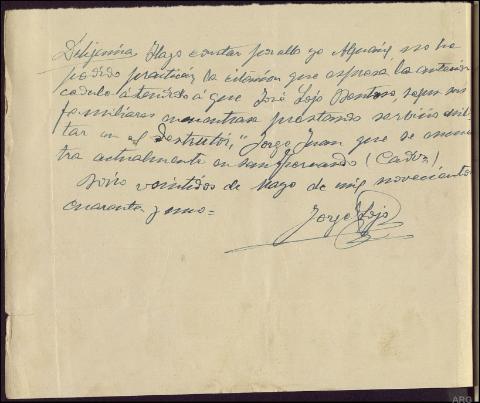 Diligencia Hago constar por ello yo Alguacil, no ha
podido practicar la citacion que espresa la anterior
cedula atendido á que José Lojo Dontoso, segun sus
familiares encuentrase prestando servicio mili-
tar en el Destrutor, "Jorge Juan que se encuen
tra actualmente en San Fernando (Cadiz)
veintidos de Mayo de mil novecientos
cuarenta y uno=
Jorge Lojo
ARG